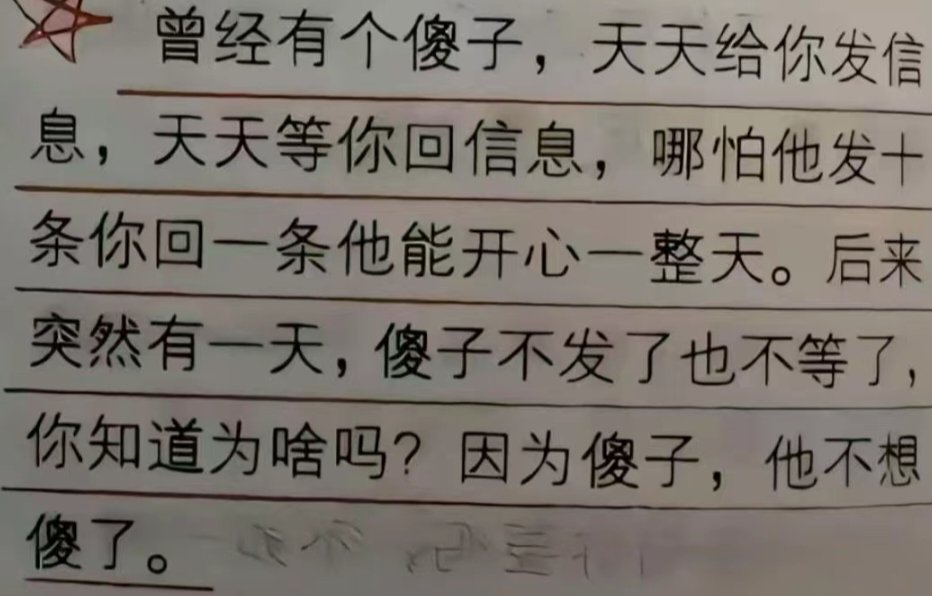 曾经有个傻子，天天给你发信
息，天天等你回信息，哪怕他发十
条你回一条他能开心一整天。后来
突然有一天，傻子不发了也不等了，
你知道为啥吗？因为傻子，他不想
傻了。